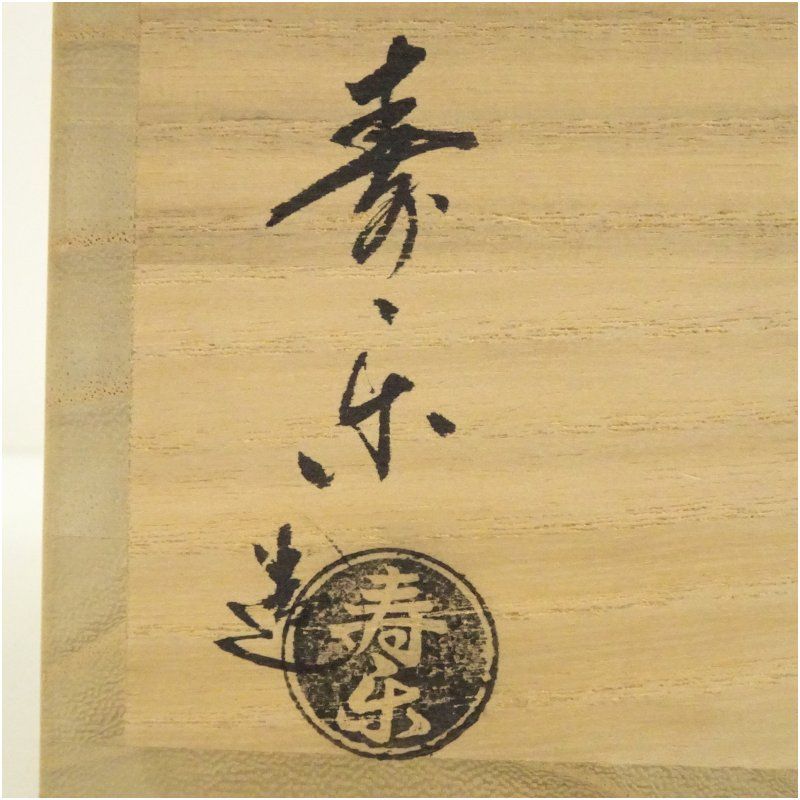 寿楽
造
寿楽